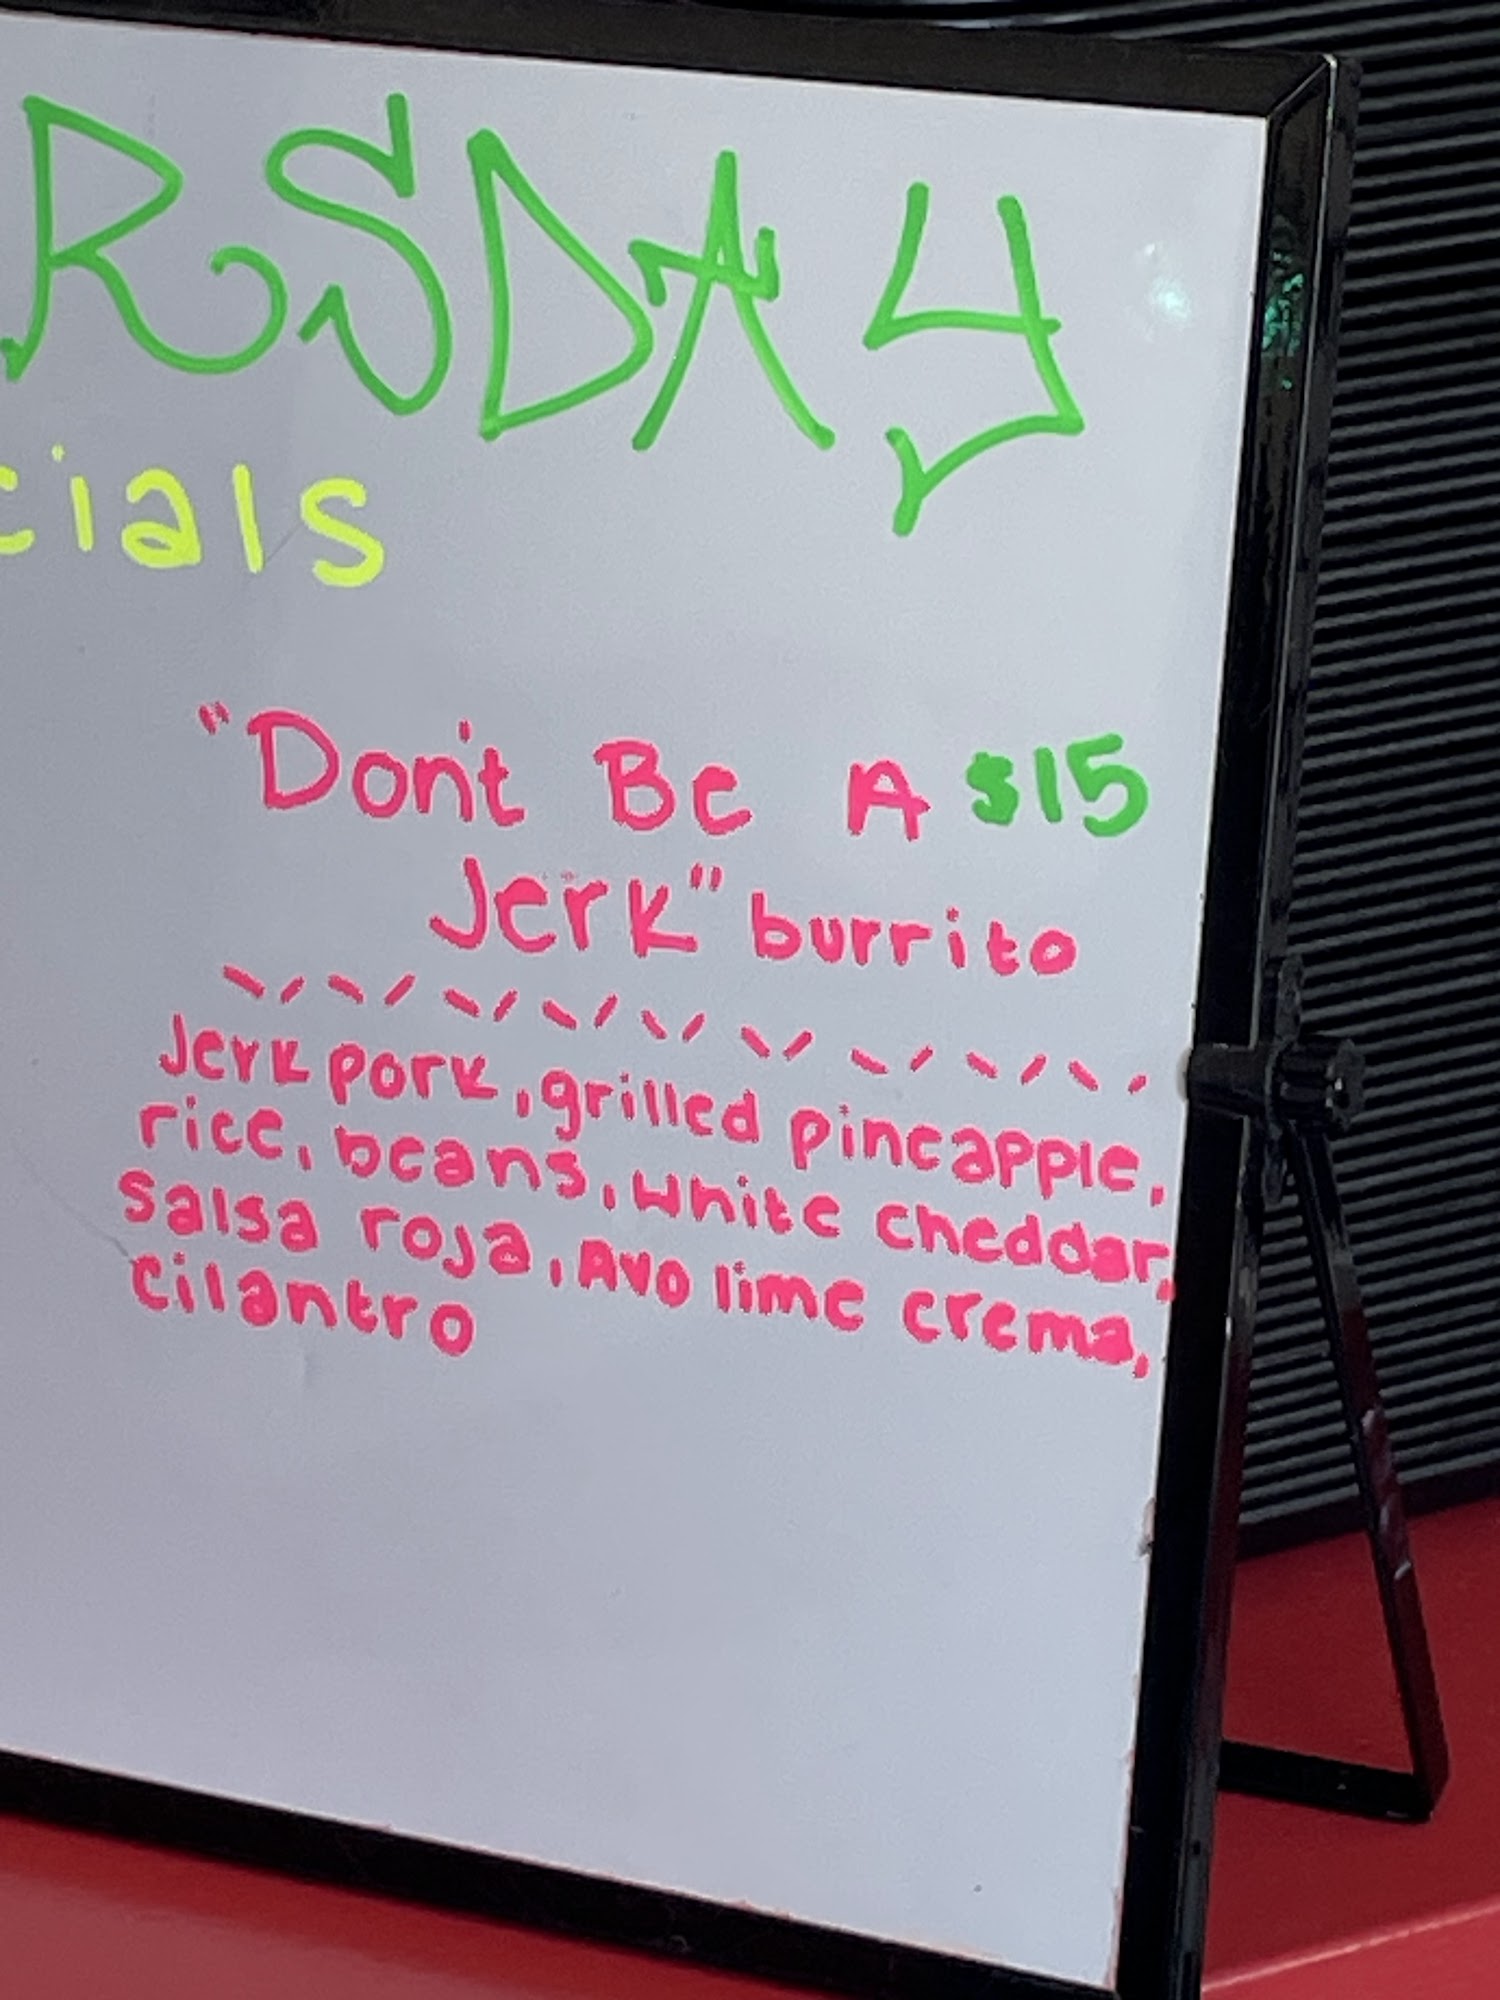 RSDAY
cials
"Don't Be A $15
Jerk" burrito
Jerk pork, grilled pineapple,
rice, beans, white cheddar,
Salsa roja, Avo lime crema,
Cilantro